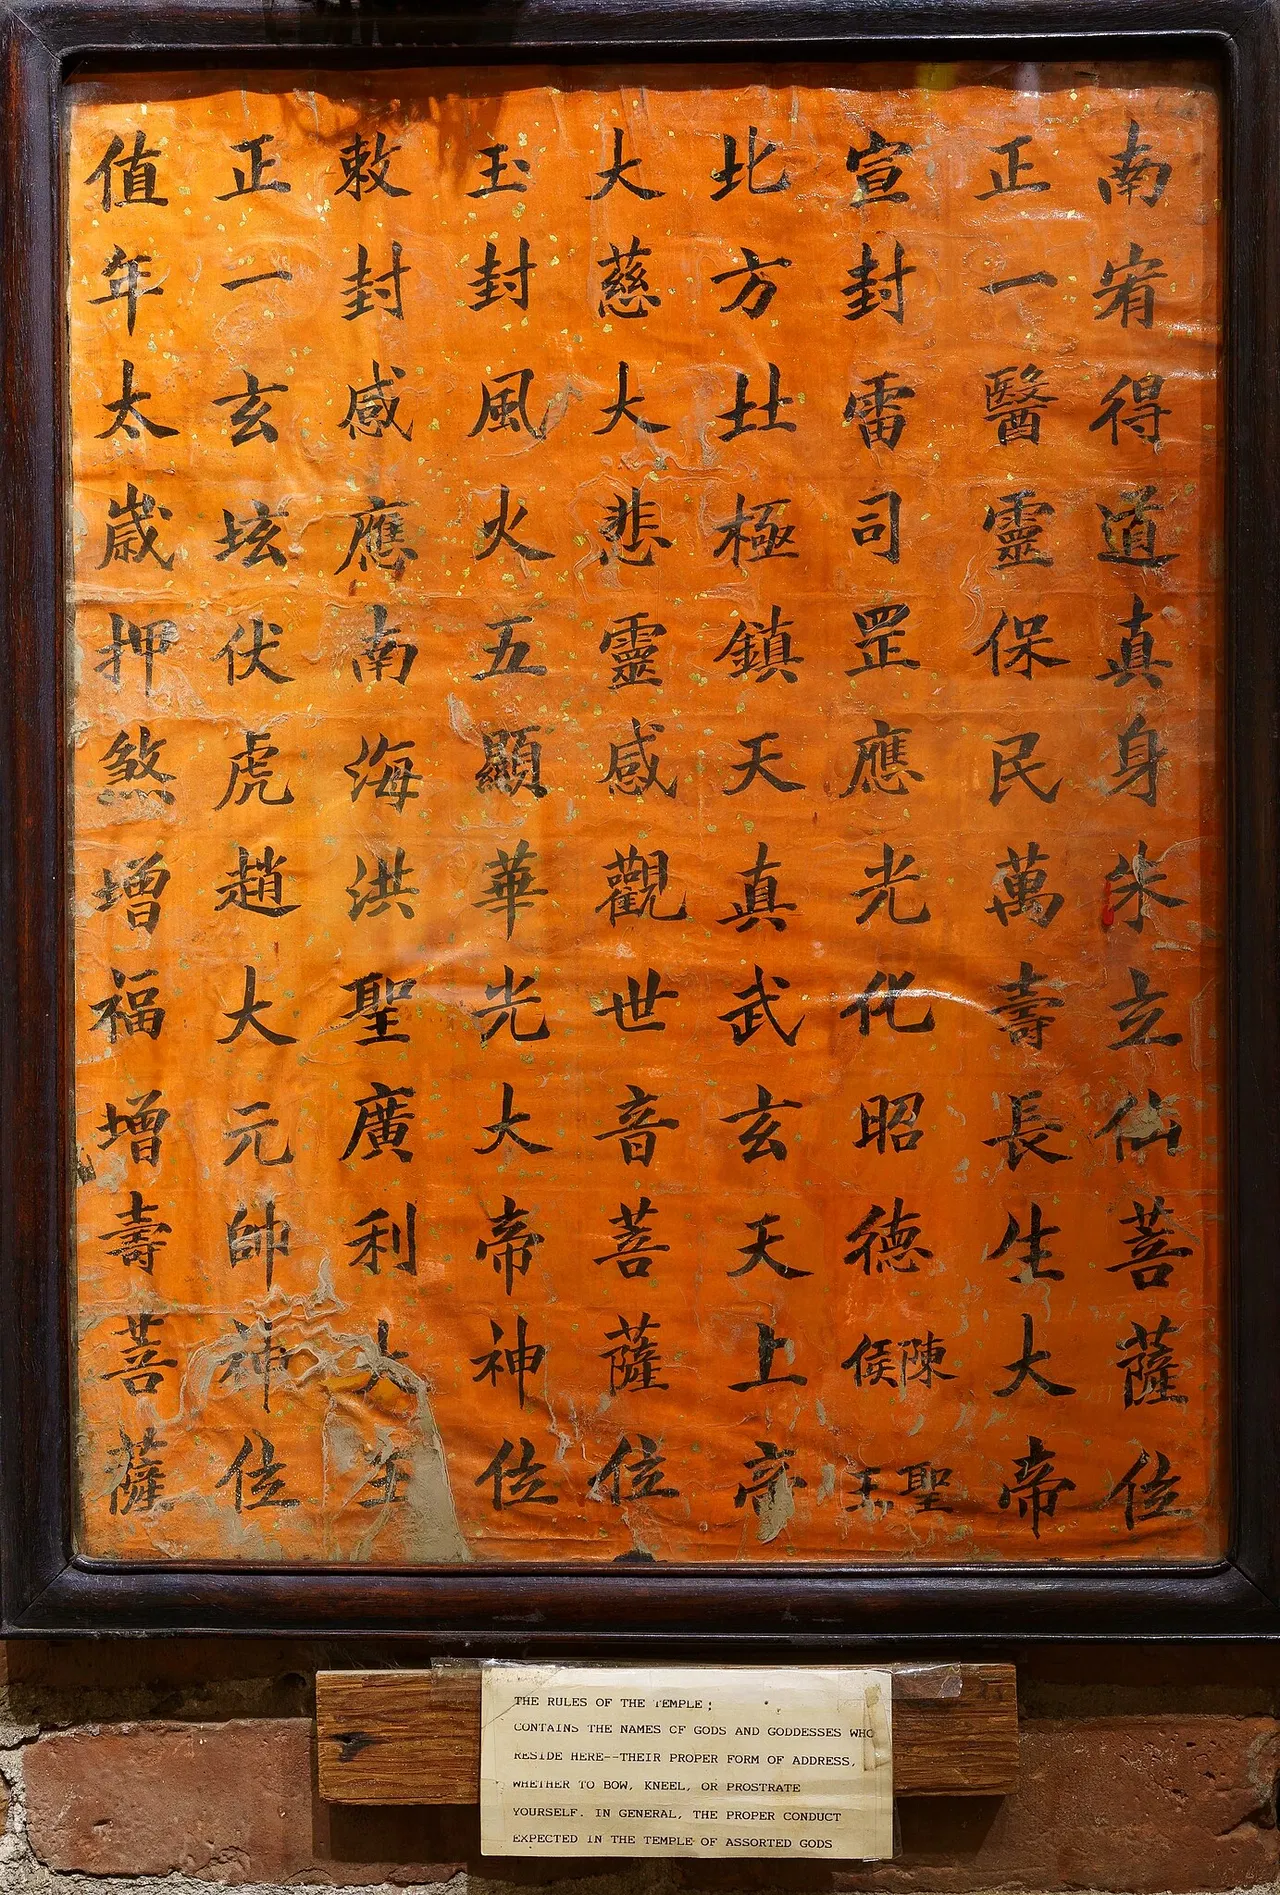 南宥得道真身朱立仙菩薩位
正一醫靈保民萬壽長生大帝
宣封雷司罡應光化昭德陳聖侯王
北方北極鎮天真武玄天上帝
大慈大悲靈感觀世音菩薩位
玉封風火五顯華光大帝神位
敕封感應南海洪聖廣利大王
正一玄坛伏虎趙大元帥神位
值年太歲押煞增福增壽菩薩
THE RULES OF THE TEMPLE;
CONTAINS THE NAMES OF GODS AND GODDESSES WHO
RESIDE HERE--THEIR PROPER FORM OF ADDRESS,
WHETHER TO BOW, KNEEL, OR PROSTRATE
YOURSELF. IN GENERAL, THE PROPER CONDUCT
EXPECTED IN THE TEMPLE OF ASSORTED GODS